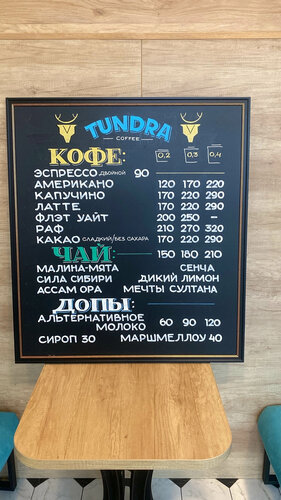 TUNDRA
COFFEE
КОФЕ: 0,2 0,3 0,4
ЭСПРЕССО ДВОЙНОЙ 90 —
АМЕРИКАНО 120 170 220
КАПУЧИНО 170 220 290
ЛАТТЕ 170 220 290
ФЛЭТ УАЙТ 200 250 —
РАФ 210 270 320
КАКАО СЛАДКИЙ/БЕЗ САХАРА 170 220 290
ЧАЙ: 150 180 210
МАЛИНА-МЯТА СЕНЧА
СИЛА СИБИРИ ДИКИЙ ЛИМОН
АССАМ ОРА МЕЧТЫ СУЛТАНА
ДОПЫ:
АЛЬТЕРНАТИВНОЕ
МОЛОКО 60 90 120
СИРОП 30 МАРШМЕЛЛОУ 40